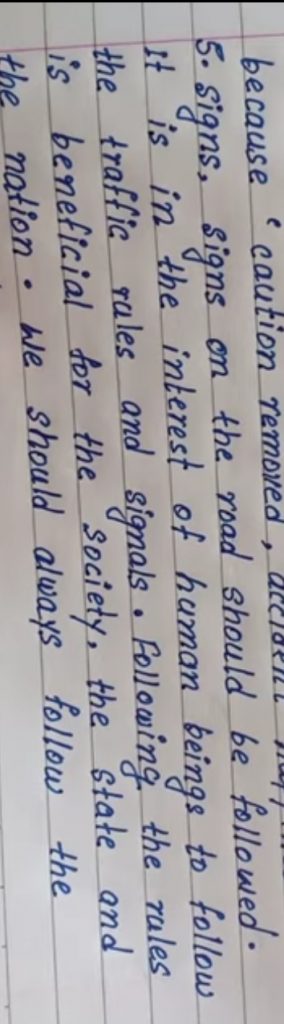 because 'caution removed, accident
5. signs, signs on the road should be followed.
It is in the interest of human beings to follow
the traffic rules and signals. Following the rules
is beneficial for the society, the state and
the nation. We should always follow the